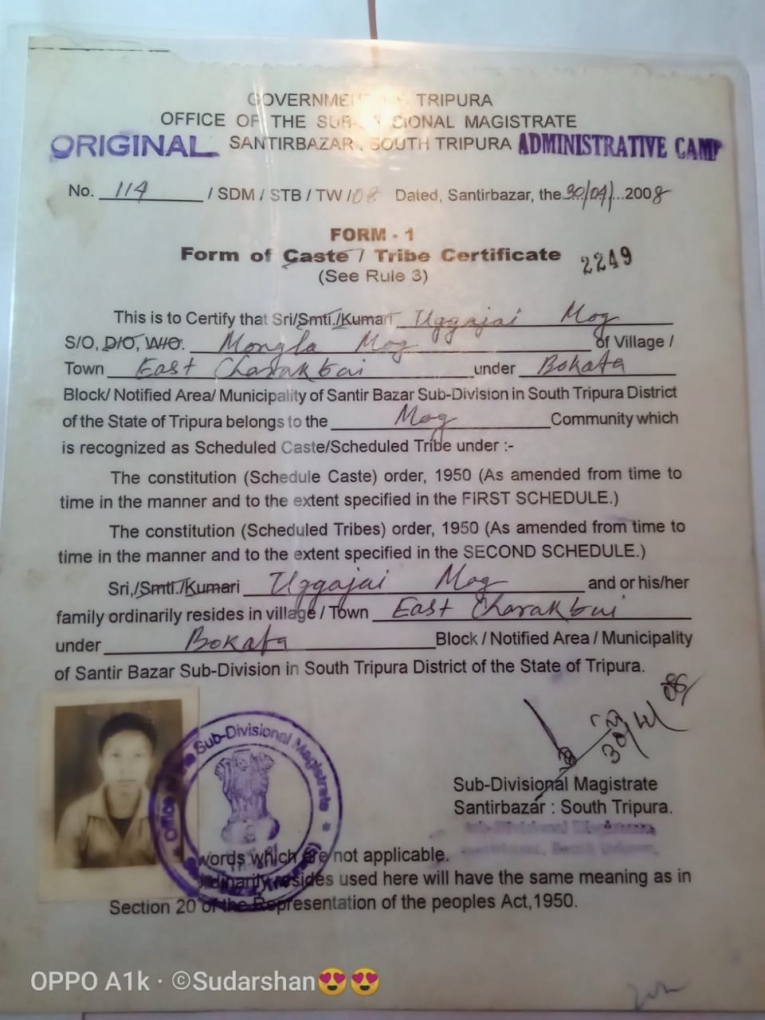 GOVERNMENT OF TRIPURA
OFFICE OF THE SUB-DIVISIONAL MAGISTRATE
ORIGINAL SANTIRBAZAR, SOUTH TRIPURA ADMINISTRATIVE CAMP
No. 114 / SDM / STB / TW / 08 Dated, Santirbazar, the 30/04/...2008
FORM - 1
Form of Caste / Tribe Certificate 2249
(See Rule 3)
This is to Certify that Sri/Smti./Kumari Uggajai Mog
S/O, D/O, W/O. Mongla Mog of Village /
Town East Charakbai under Bokafa
Block/ Notified Area/ Municipality of Santir Bazar Sub-Division in South Tripura District
of the State of Tripura belongs to the Mog Community which
is recognized as Scheduled Caste/Scheduled Tribe under :-
The constitution (Schedule Caste) order, 1950 (As amended from time to
time in the manner and to the extent specified in the FIRST SCHEDULE.)
The constitution (Scheduled Tribes) order, 1950 (As amended from time to
time in the manner and to the extent specified in the SECOND SCHEDULE.)
Sri,/Smti./Kumari Uggajai Mog and or his/her
family ordinarily resides in village / Town East Charakbai
under Bokafa Block / Notified Area / Municipality
of Santir Bazar Sub-Division in South Tripura District of the State of Tripura.
30/4/08
Office of the Sub-Divisional Magistrate
Sub-Divisional Magistrate
Santirbazar : South Tripura.
words which are not applicable.
ordinarily resides used here will have the same meaning as in
Section 20 of the Representation of the peoples Act,1950.
OPPO A1k · ©Sudarshan😍😍